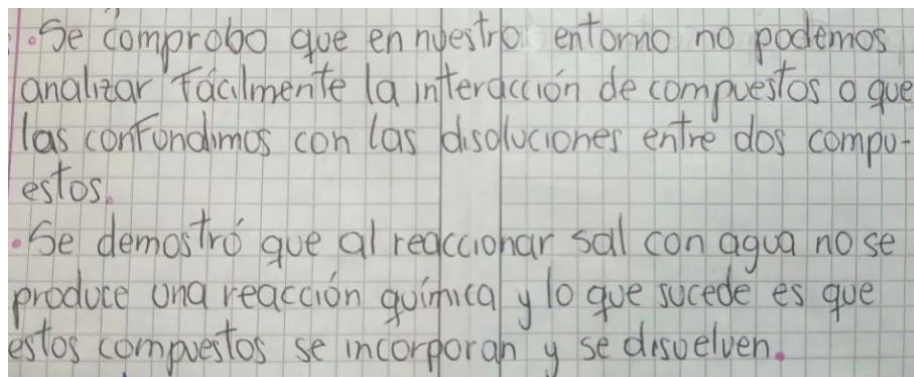 • Se comprobo que en nuestro entorno no podemos
analizar fácilmente la interacción de compuestos o que
las confundimos con las disoluciones entre dos compu-
estos.
• Se demostró que al reaccionar sal con agua no se
produce una reacción química y lo que sucede es que
estos compuestos se incorporan y se disuelven.